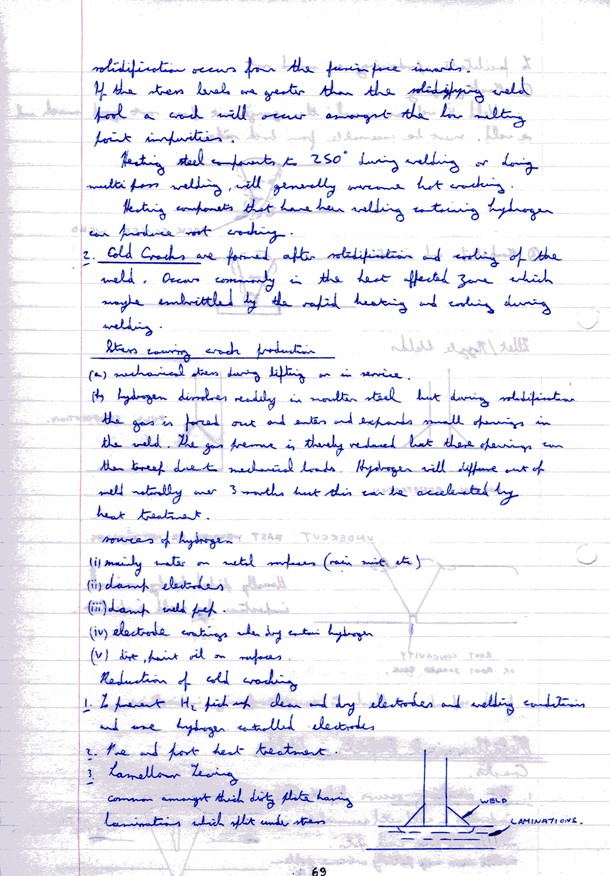 solidification occurs from the fusion face inwards.
If the stress levels are greater than the solidifying weld
pool a crack will occur amongst the low melting
point impurities.
Heating steel components to 250° during welding or doing
multi pass welding, will generally overcome hot cracking.
Heating components that have been welding containing hydrogen
can produce root cracking.
2. Cold Cracks are formed after solidification and cooling of the
weld. Occurs commonly in the heat affected zone which
maybe embrittled by the rapid heating and cooling during
welding.
Stress causing crack production
(a) mechanical stress during lifting or in service.
(b) hydrogen dissolves readily in moulten steel but during solidification
the gas is forced out and enters and expands small openings in
the weld. The gas pressure is thereby reduced but these openings can
then due to mechanical loads. Hydrogen will diffuse out of
weld naturally over 3 months but this can be accelerated by
heat treatment.
sources of hydrogen
(i) mainly water on metal surfaces (rain mist etc)
(ii) damp electrodes
(iii) damp weld prep.
(iv) electrode coatings when dry contain hydrogen
(v) dirt, paint oil on surfaces.
Reduction of cold cracking
1. To prevent H₂ pick up clean and dry electrodes and welding conditions
and use hydrogen controlled electrodes
2. Pre and post heat treatment.
3. Lamellour Tearing
common amongst thick dirty plate having
laminations which split under stress
WELD
LAMINATIONS.
69